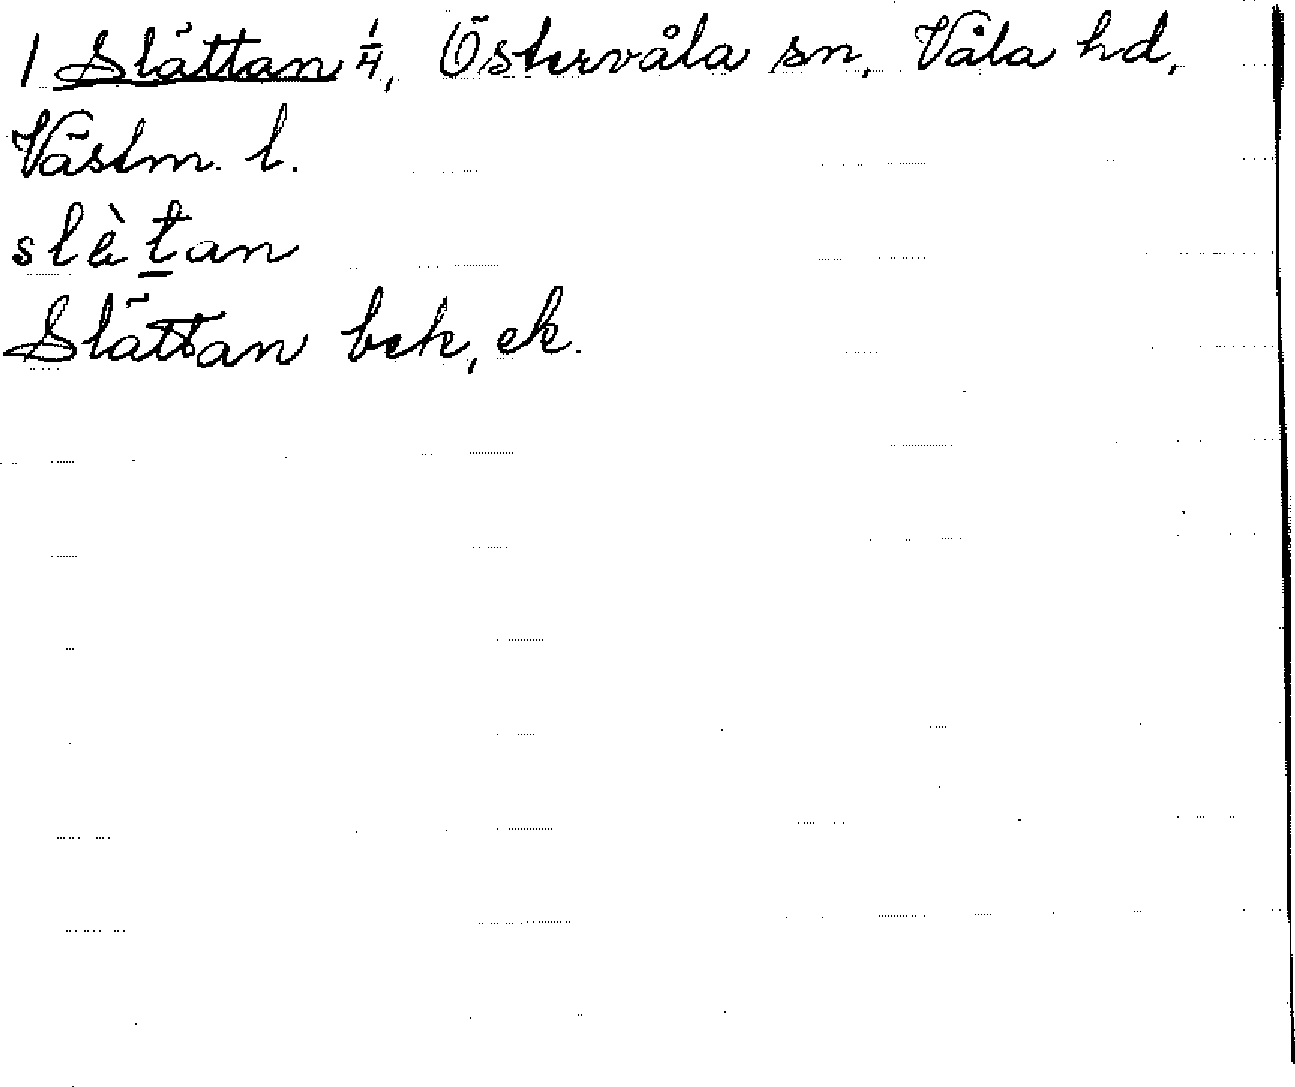 1 Slättan 1/4, Östervåla sn, Våla hd,
Västm. l.
slè t̲an
Slättan bek, ek.